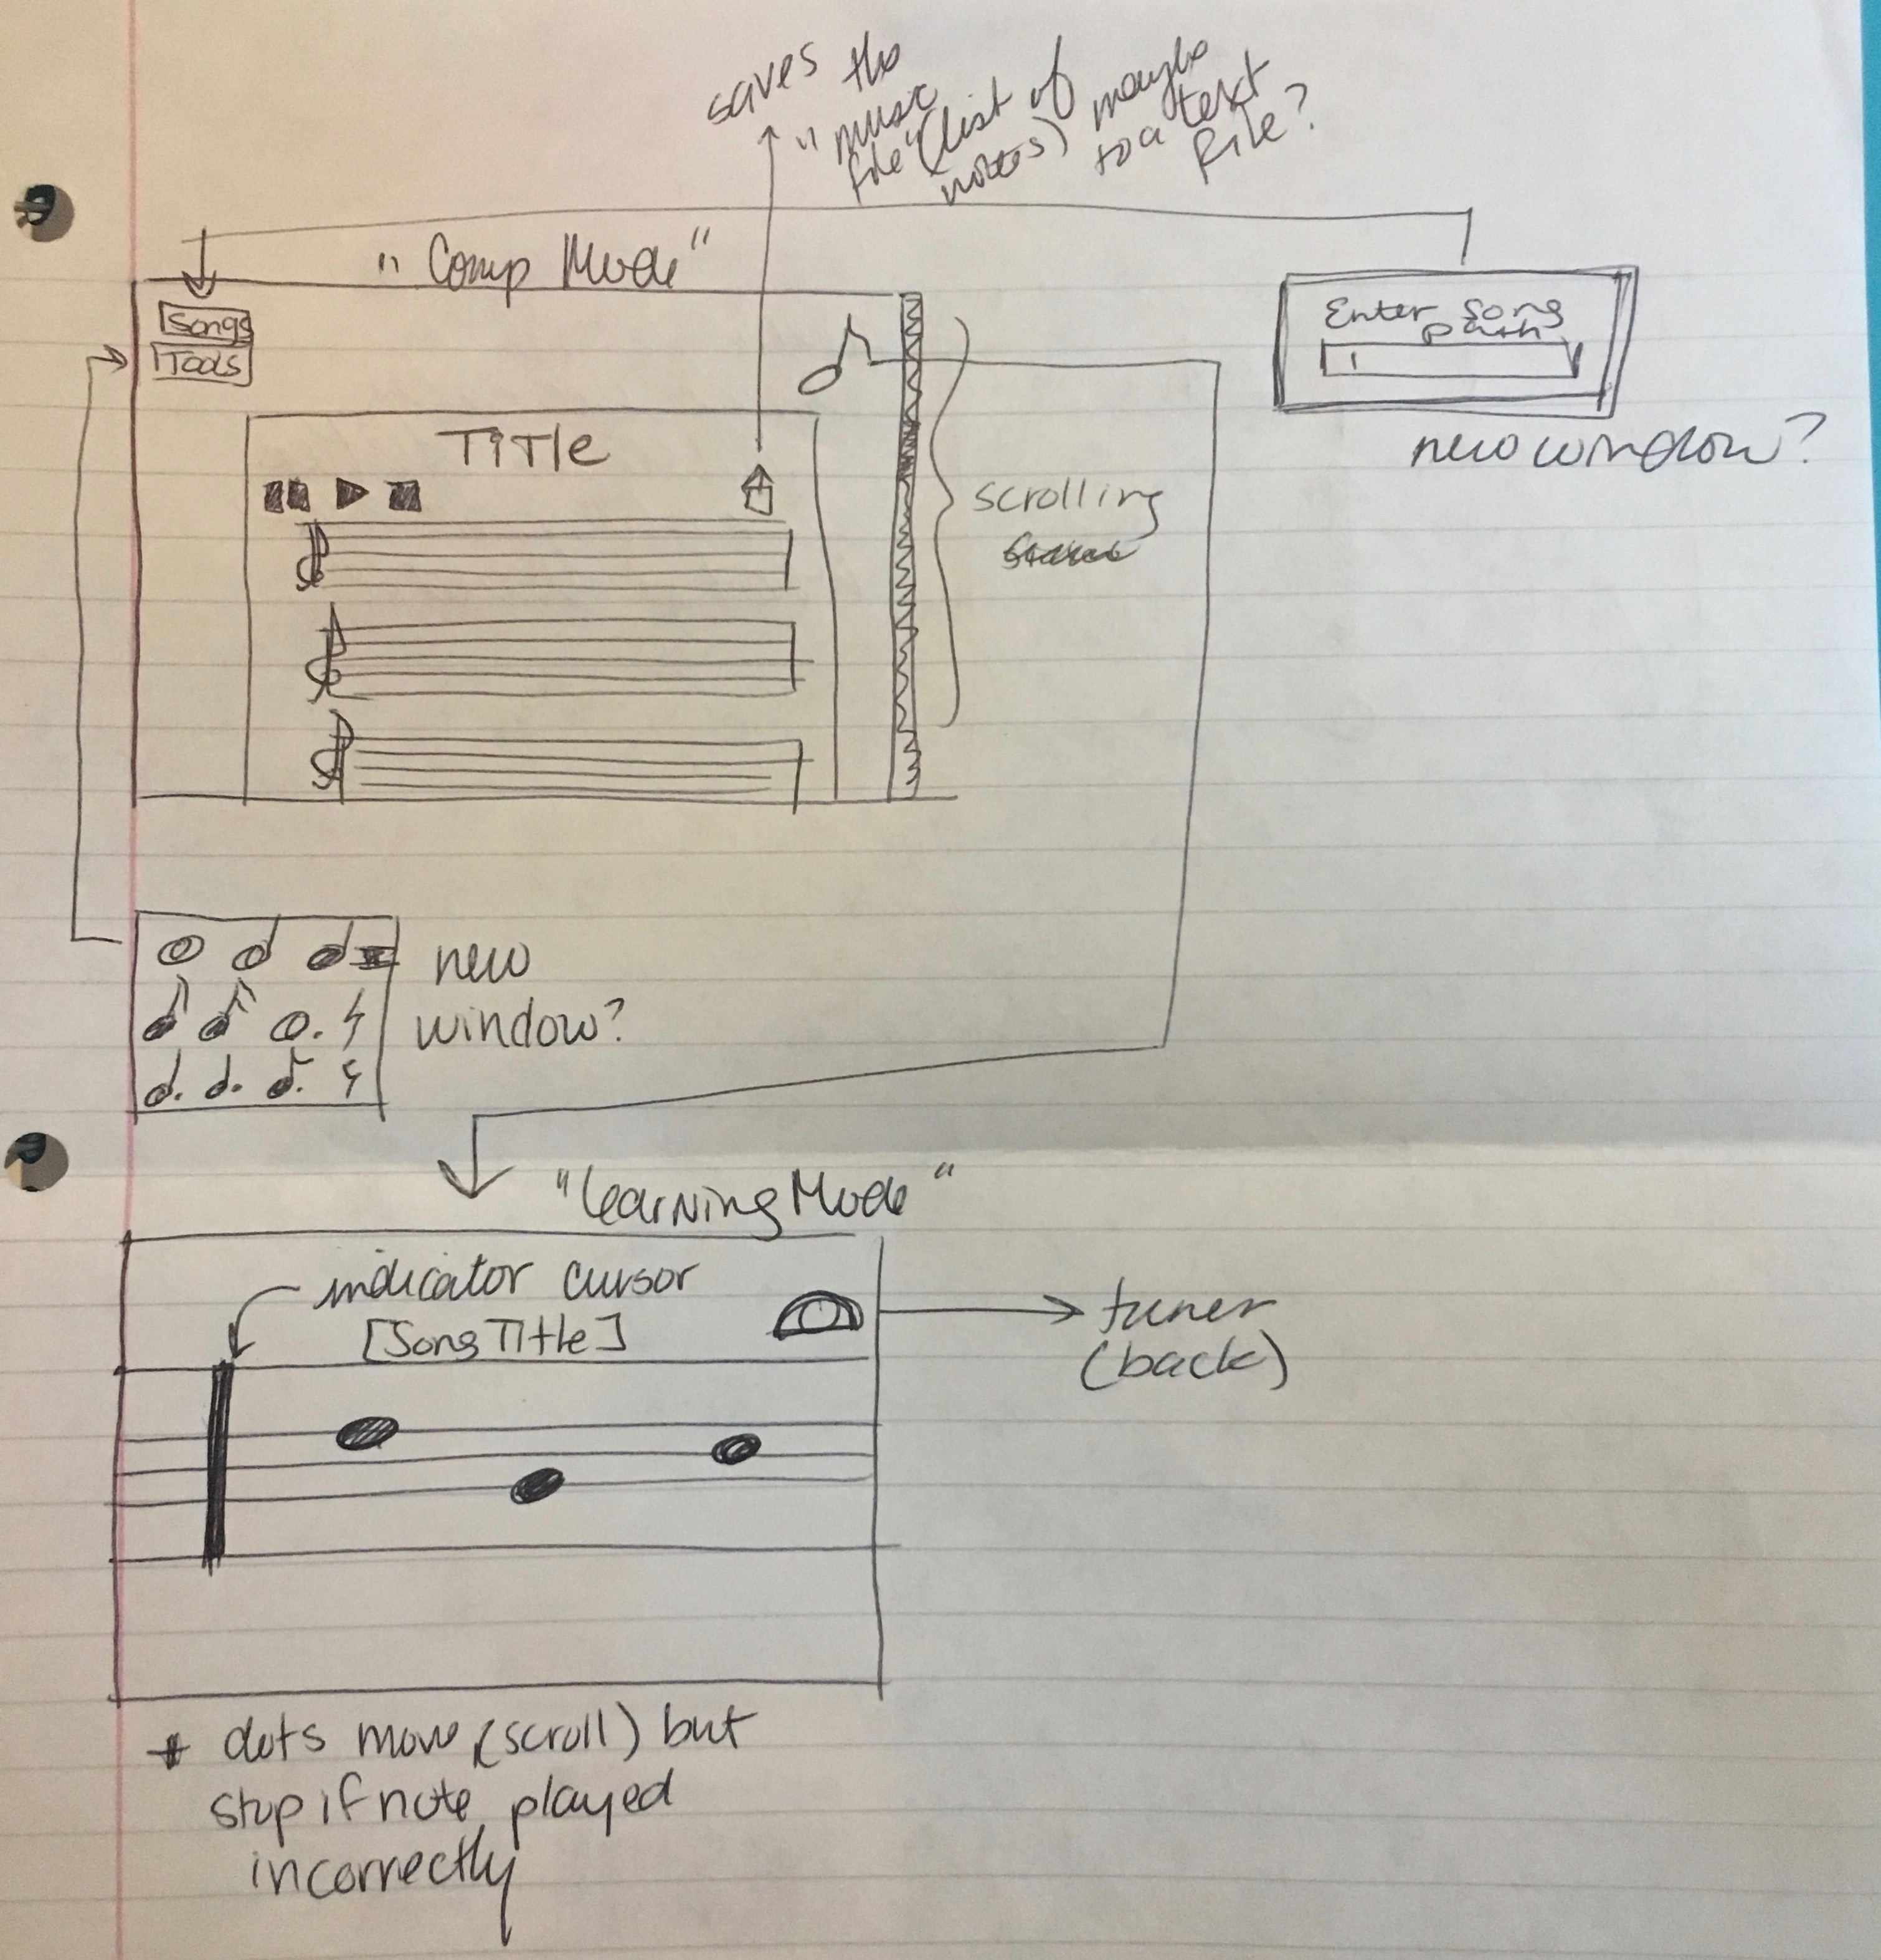 saves the
"music
file" (list of
notes) maybe
to a text
file?
"Comp Mode"
Songs
Tools
Enter Song
path
new window?
TITLE
scrolling
new
window?
"Learning Mode"
indicator cursor
[Song Title]
tuner
(back)
* dots move (scroll) but
stop if note played
incorrectly